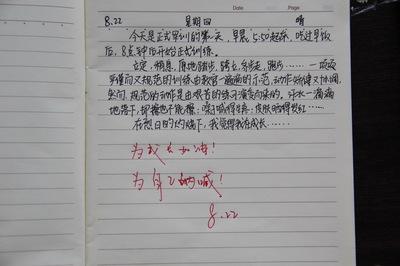 8.22 星期四 晴
今天是正式军训的第一天,早晨5:50起床,吃过早饭
后,8点钟后开始正式训练。
立定,稍息,原地踏步,跨立,齐步走,跑步……一项项
又懂而又规范的训练由教官一遍遍的示范,动作矫健又协调,
然而,规范的动作是由艰苦的练习演变而来的。汗水一滴滴
地落下,却擦也不能擦;嗓子喊得生疼,皮肤晒得发红……
在烈日的灼烧下,我觉得我在成长……
为成长加油!
为自己呐喊!
8.22